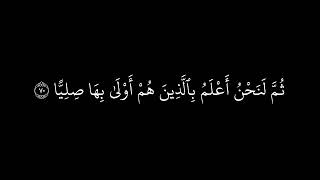 ثُمَّ لَنَحْنُ أَعْلَمُ بِٱلَّذِينَ هُمْ أَوْلَىٰ بِهَا صِلِيًّا ۝٧٠